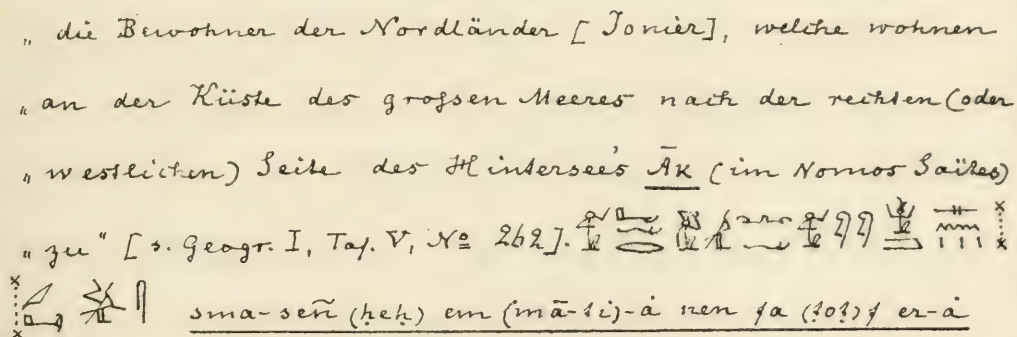 „ die Bewohner der Nordländer [Jonier], welche wohnen
„ an der Küste des grofsen Meeres nach der rechten (oder
„ westlichen) Seite des Hintersee's Āk (im Nomos Saïtes)
„ zu“ [s. Geogr. I, Taf. V, No 262].
sma-señ (ḥeḥ) em (mā-ti)-à nen fa (ṭoṭ) f er-à